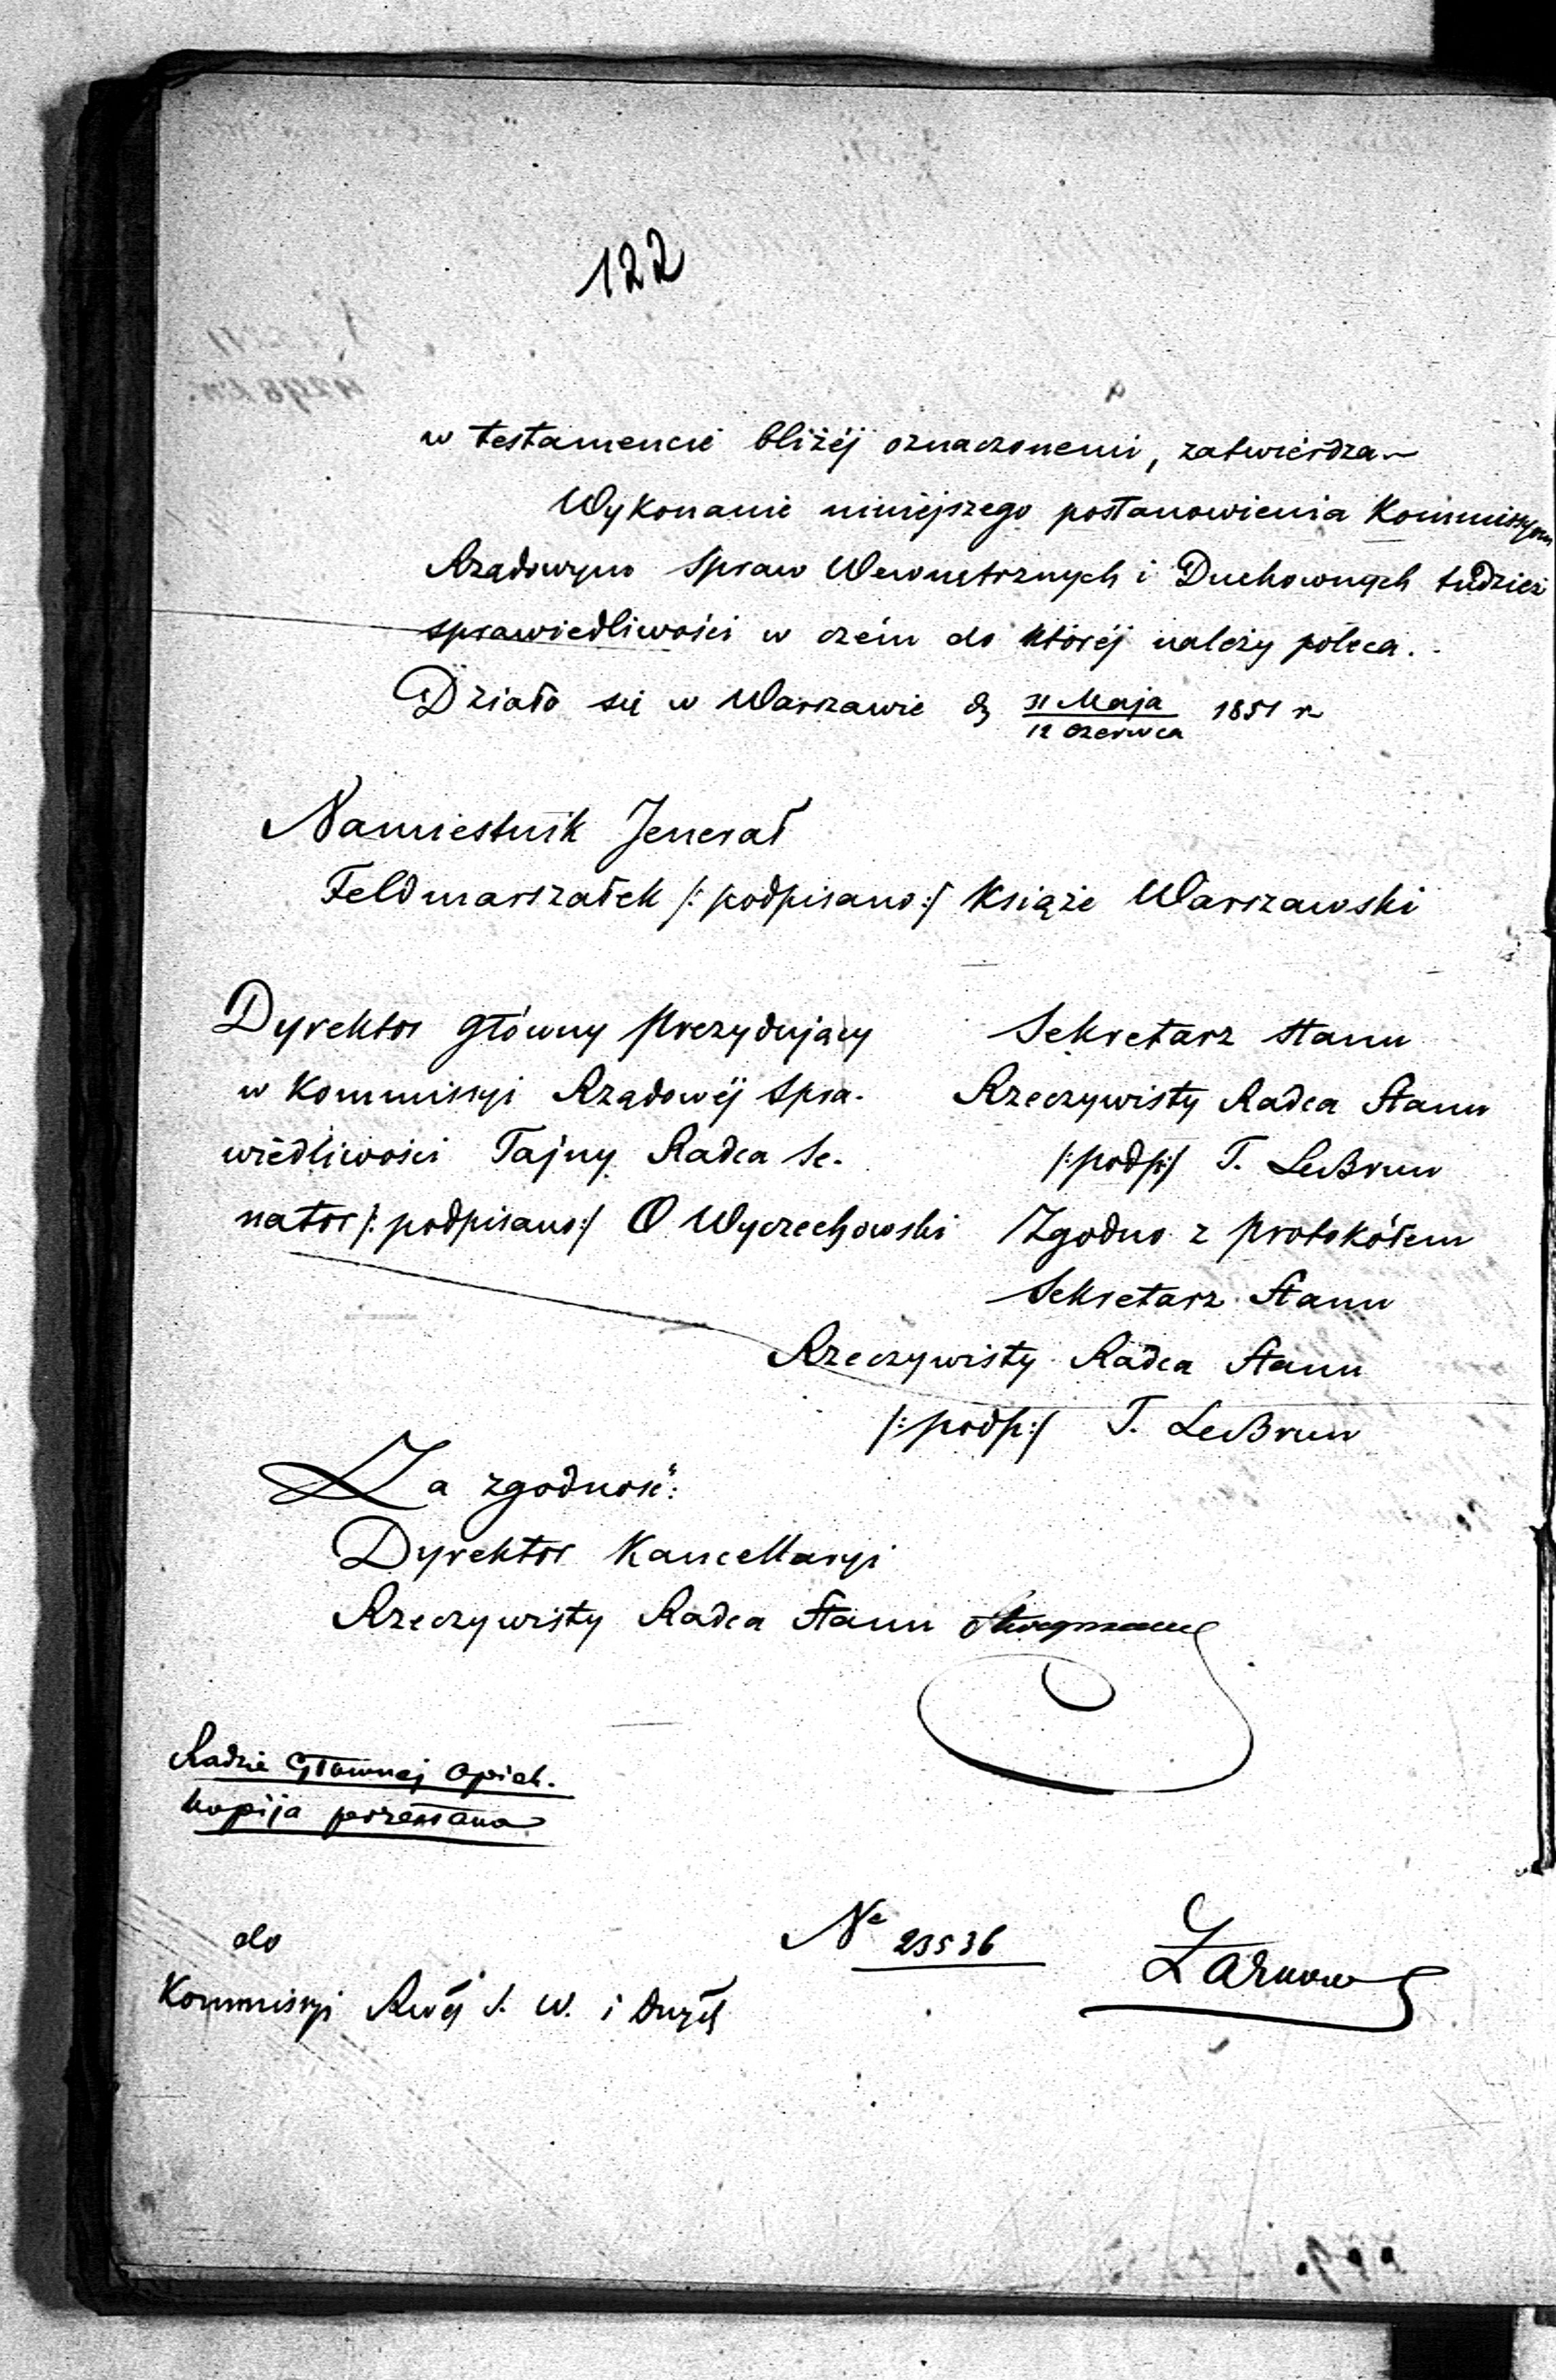 122
w testamencie bliżéj oznaczonemi, zatwierdza
Wykonanie niniejszego postanowienia Kommissyom
Rządowym Spraw Wewnetrznych i Duchownych tudzież
sprawiedliwości w czém do któréj należy poleca.
Działo się w Warszawie d 31 Maja / 12 Czerwca 1851 r
Namiestnik Jenerał
Feldmarszałek /:podpisano:/ Książe Warszawski
Dyrektor Główny Prezydujący
w Kommissyi Rządowéj Spra-
wiedliwości Tajny Radca Se-
nator /:podpisano:/ O Wyczechowski
Sekretarz Stanu
Rzeczywisty Radca Stanu
/:podp:/ T. LeBrun
Zgodno z Protokółem
Sekretarz Stanu
Rzeczywisty Radca Stanu
/:podp:/ T. LeBrun
Za zgodność:
Dyrektor Kancellaryi
Rzeczywisty Radca Stanu
Radzie Głównej Opiek.
kopija przesłana
do
Kommissyi Rwéj S. W. i Duch
No 23536